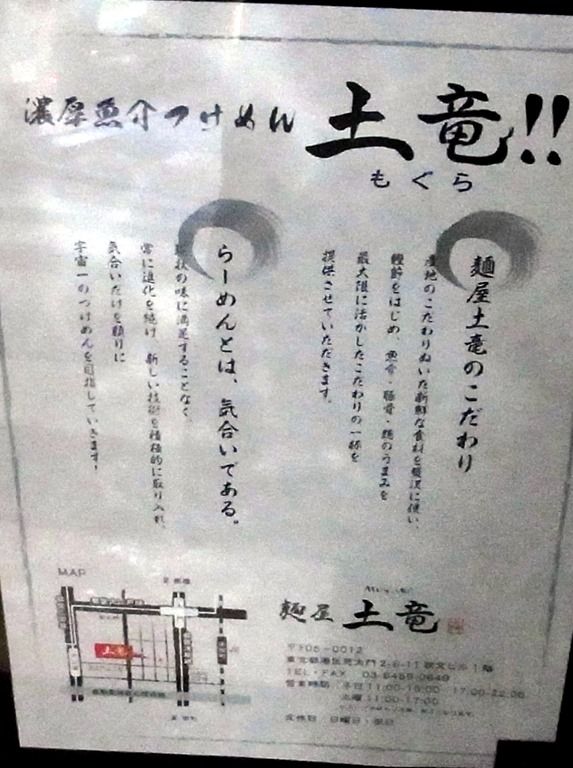 濃厚魚介つけめん 土竜!!
もぐら
麺屋土竜のこだわり
産地のこだわりぬいた新鮮な食材を贅沢に使い、
鰹節をはじめ、魚骨・豚骨・鶏のうまみを
最大限に活かしたこだわりの一杯を
提供させていただきます。
らーめんとは、気合いである。
現状の味に満足することなく、
常に進化を続け、新しい技術を積極的に取り入れ、
気合いだけを頼りに
宇宙一のつけめんを目指していきます!
MAP
土竜
麺屋 土竜
〒105-0012
東京都港区芝大門2-6-11 1階
TEL・FAX 03-6459-0649
営業時間 平日 11:00-15:00 17:00-22:00
土曜 11:00-17:00
定休日 日曜日・祝日